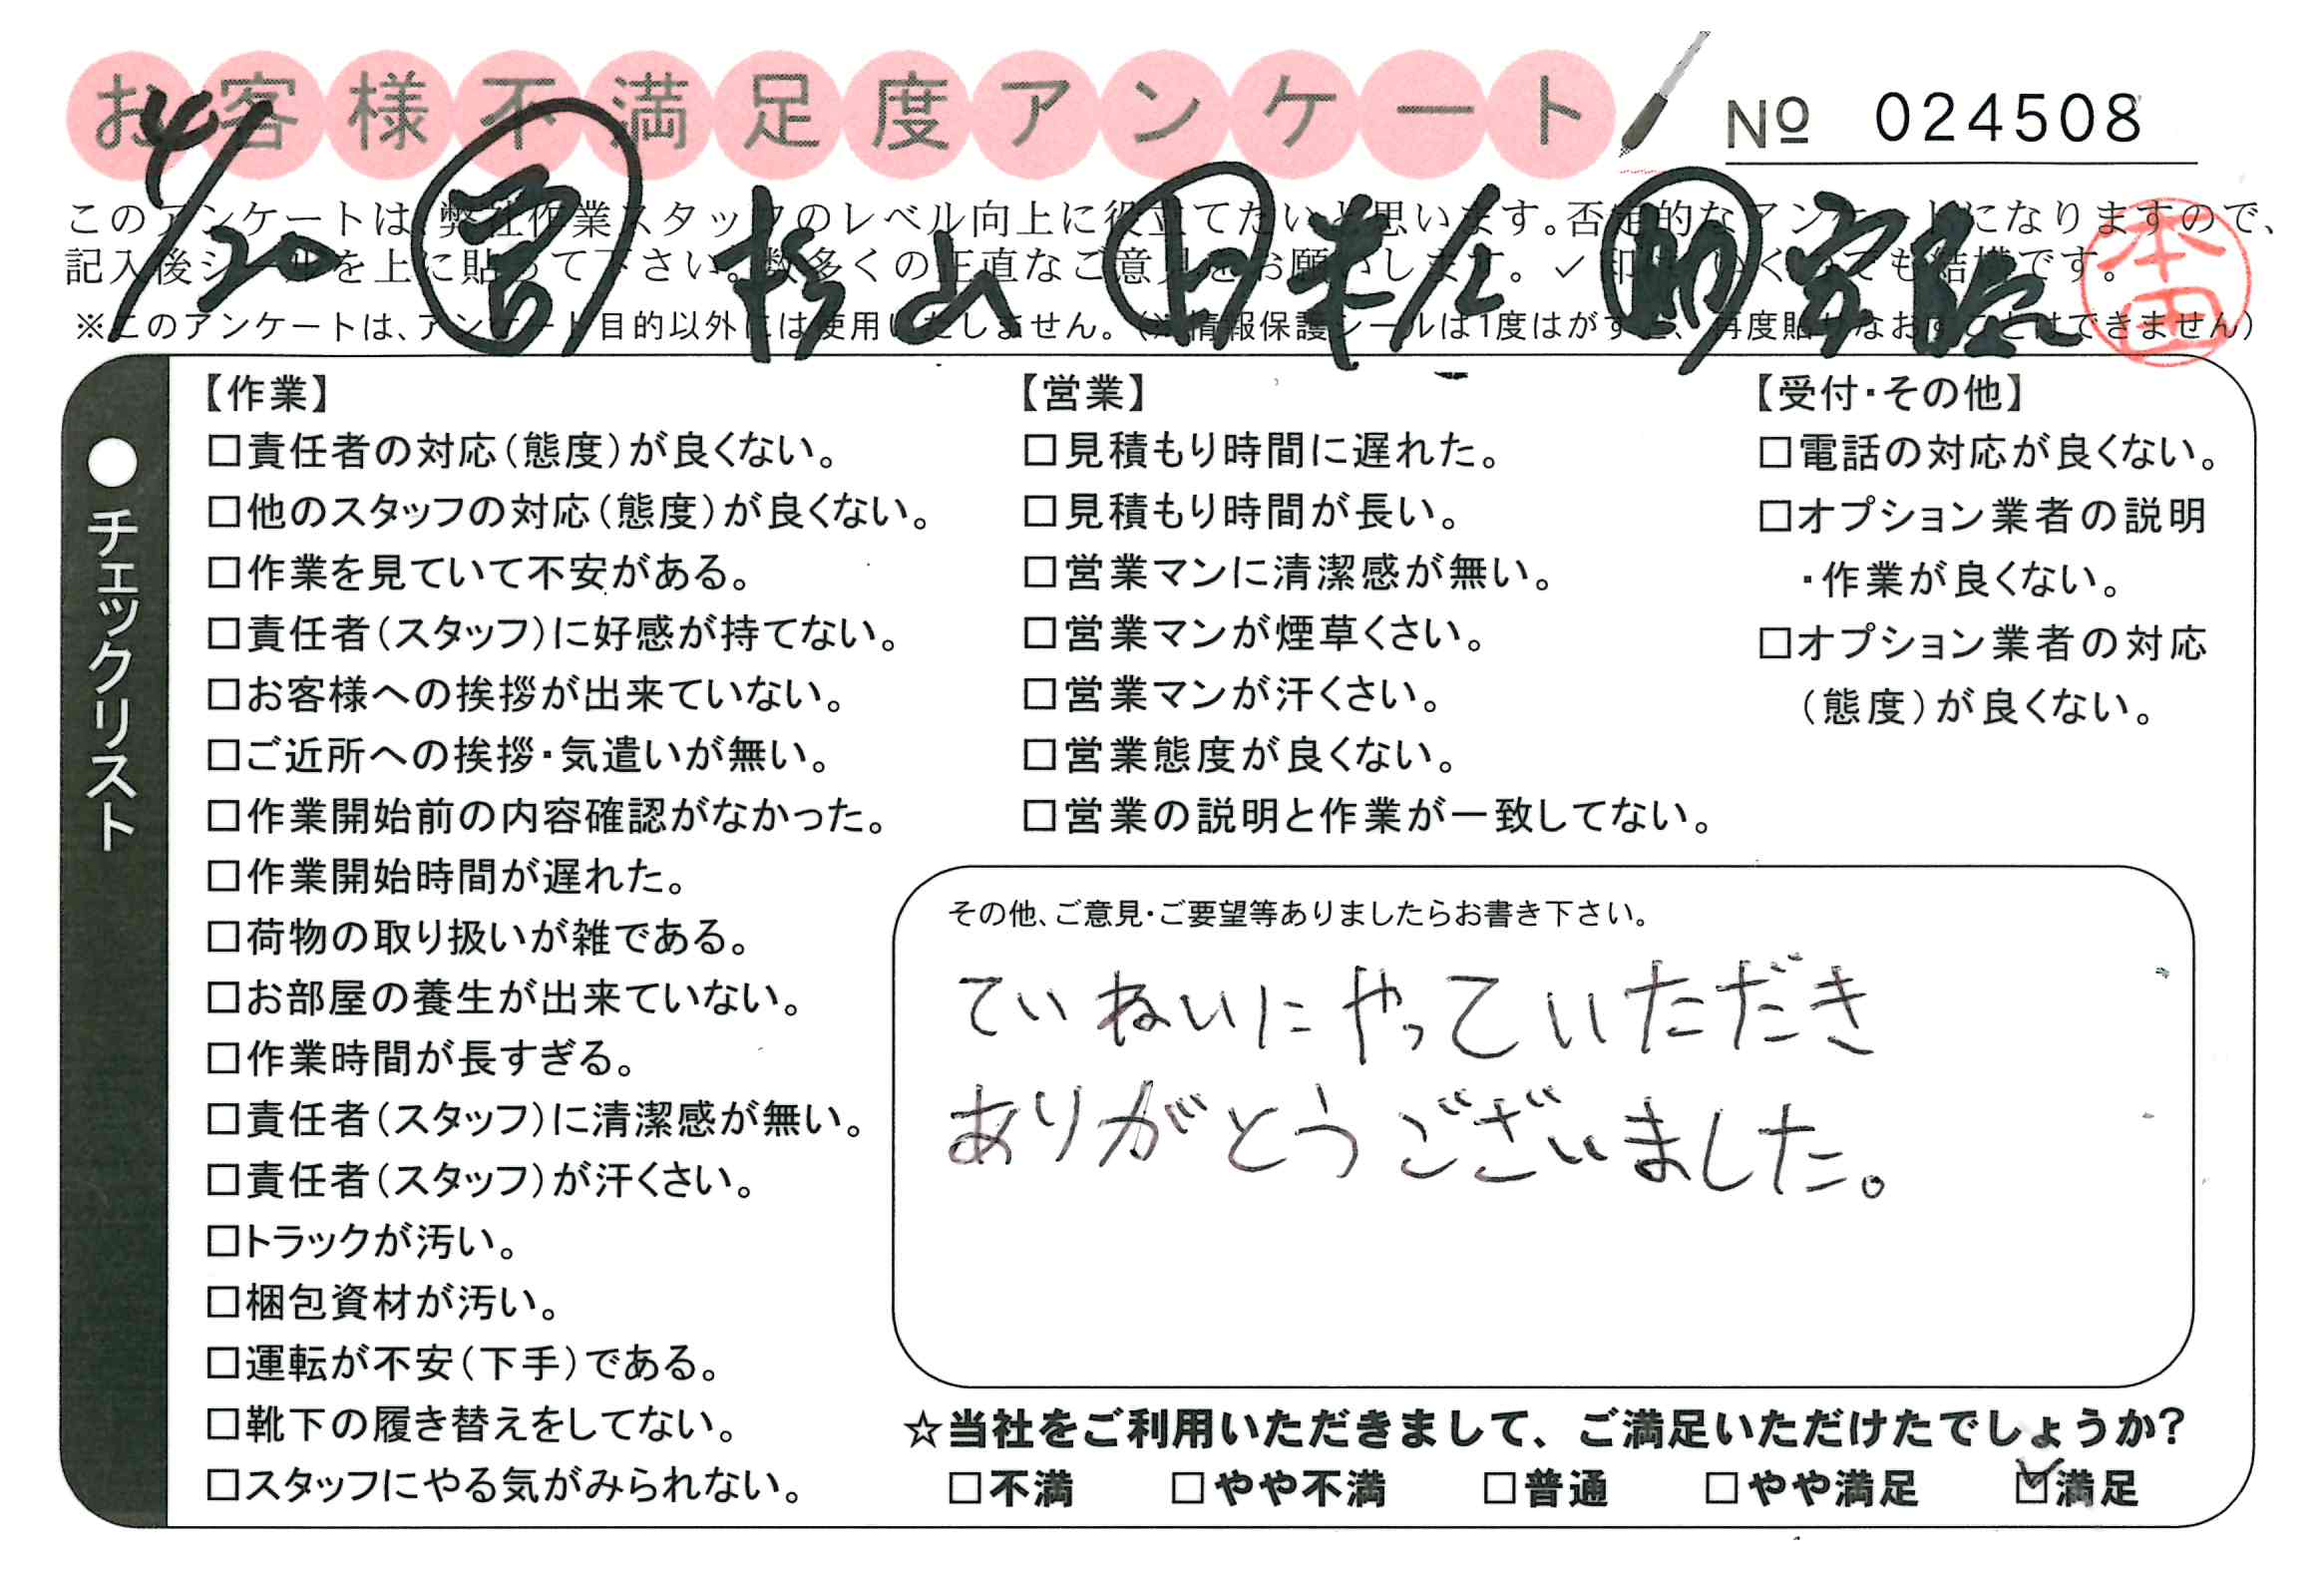 お客様不満足度アンケート
№ 024508
4/20 杉山
このアンケートは、弊社作業スタッフのレベル向上に役立てたいと思います。否定的なアンケートになりますので、
記入後シールを上に貼って下さい。数多くの正直なご意見をお願いします。✓印
も結構です。
本田
※このアンケートは、アンケート目的以外には使用いたしません。(※情報保護シールは1度はがすと、再度貼りなおすことはできません)
●チェックリスト
【作業】
□責任者の対応(態度)が良くない。
□他のスタッフの対応(態度)が良くない。
□作業を見ていて不安がある。
□責任者(スタッフ)に好感が持てない。
□お客様への挨拶が出来ていない。
□ご近所への挨拶・気遣いが無い。
□作業開始前の内容確認がなかった。
□作業開始時間が遅れた。
□荷物の取り扱いが雑である。
□お部屋の養生が出来ていない。
□作業時間が長すぎる。
□責任者(スタッフ)に清潔感が無い。
□責任者(スタッフ)が汗くさい。
□トラックが汚い。
□梱包資材が汚い。
□運転が不安(下手)である。
□靴下の履き替えをしてない。
□スタッフにやる気がみられない。
【営業】
□見積もり時間に遅れた。
□見積もり時間が長い。
□営業マンに清潔感が無い。
□営業マンが煙草くさい。
□営業マンが汗くさい。
□営業態度が良くない。
□営業の説明と作業が一致してない。
【受付・その他】
□電話の対応が良くない。
□オプション業者の説明
・作業が良くない。
□オプション業者の対応
(態度)が良くない。
その他、ご意見・ご要望等ありましたらお書き下さい。
ていねいにやっていただき
ありがとうございました。
☆当社をご利用いただきまして、ご満足いただけたでしょうか?
□不満 □やや不満 □普通 □やや満足 ☑満足